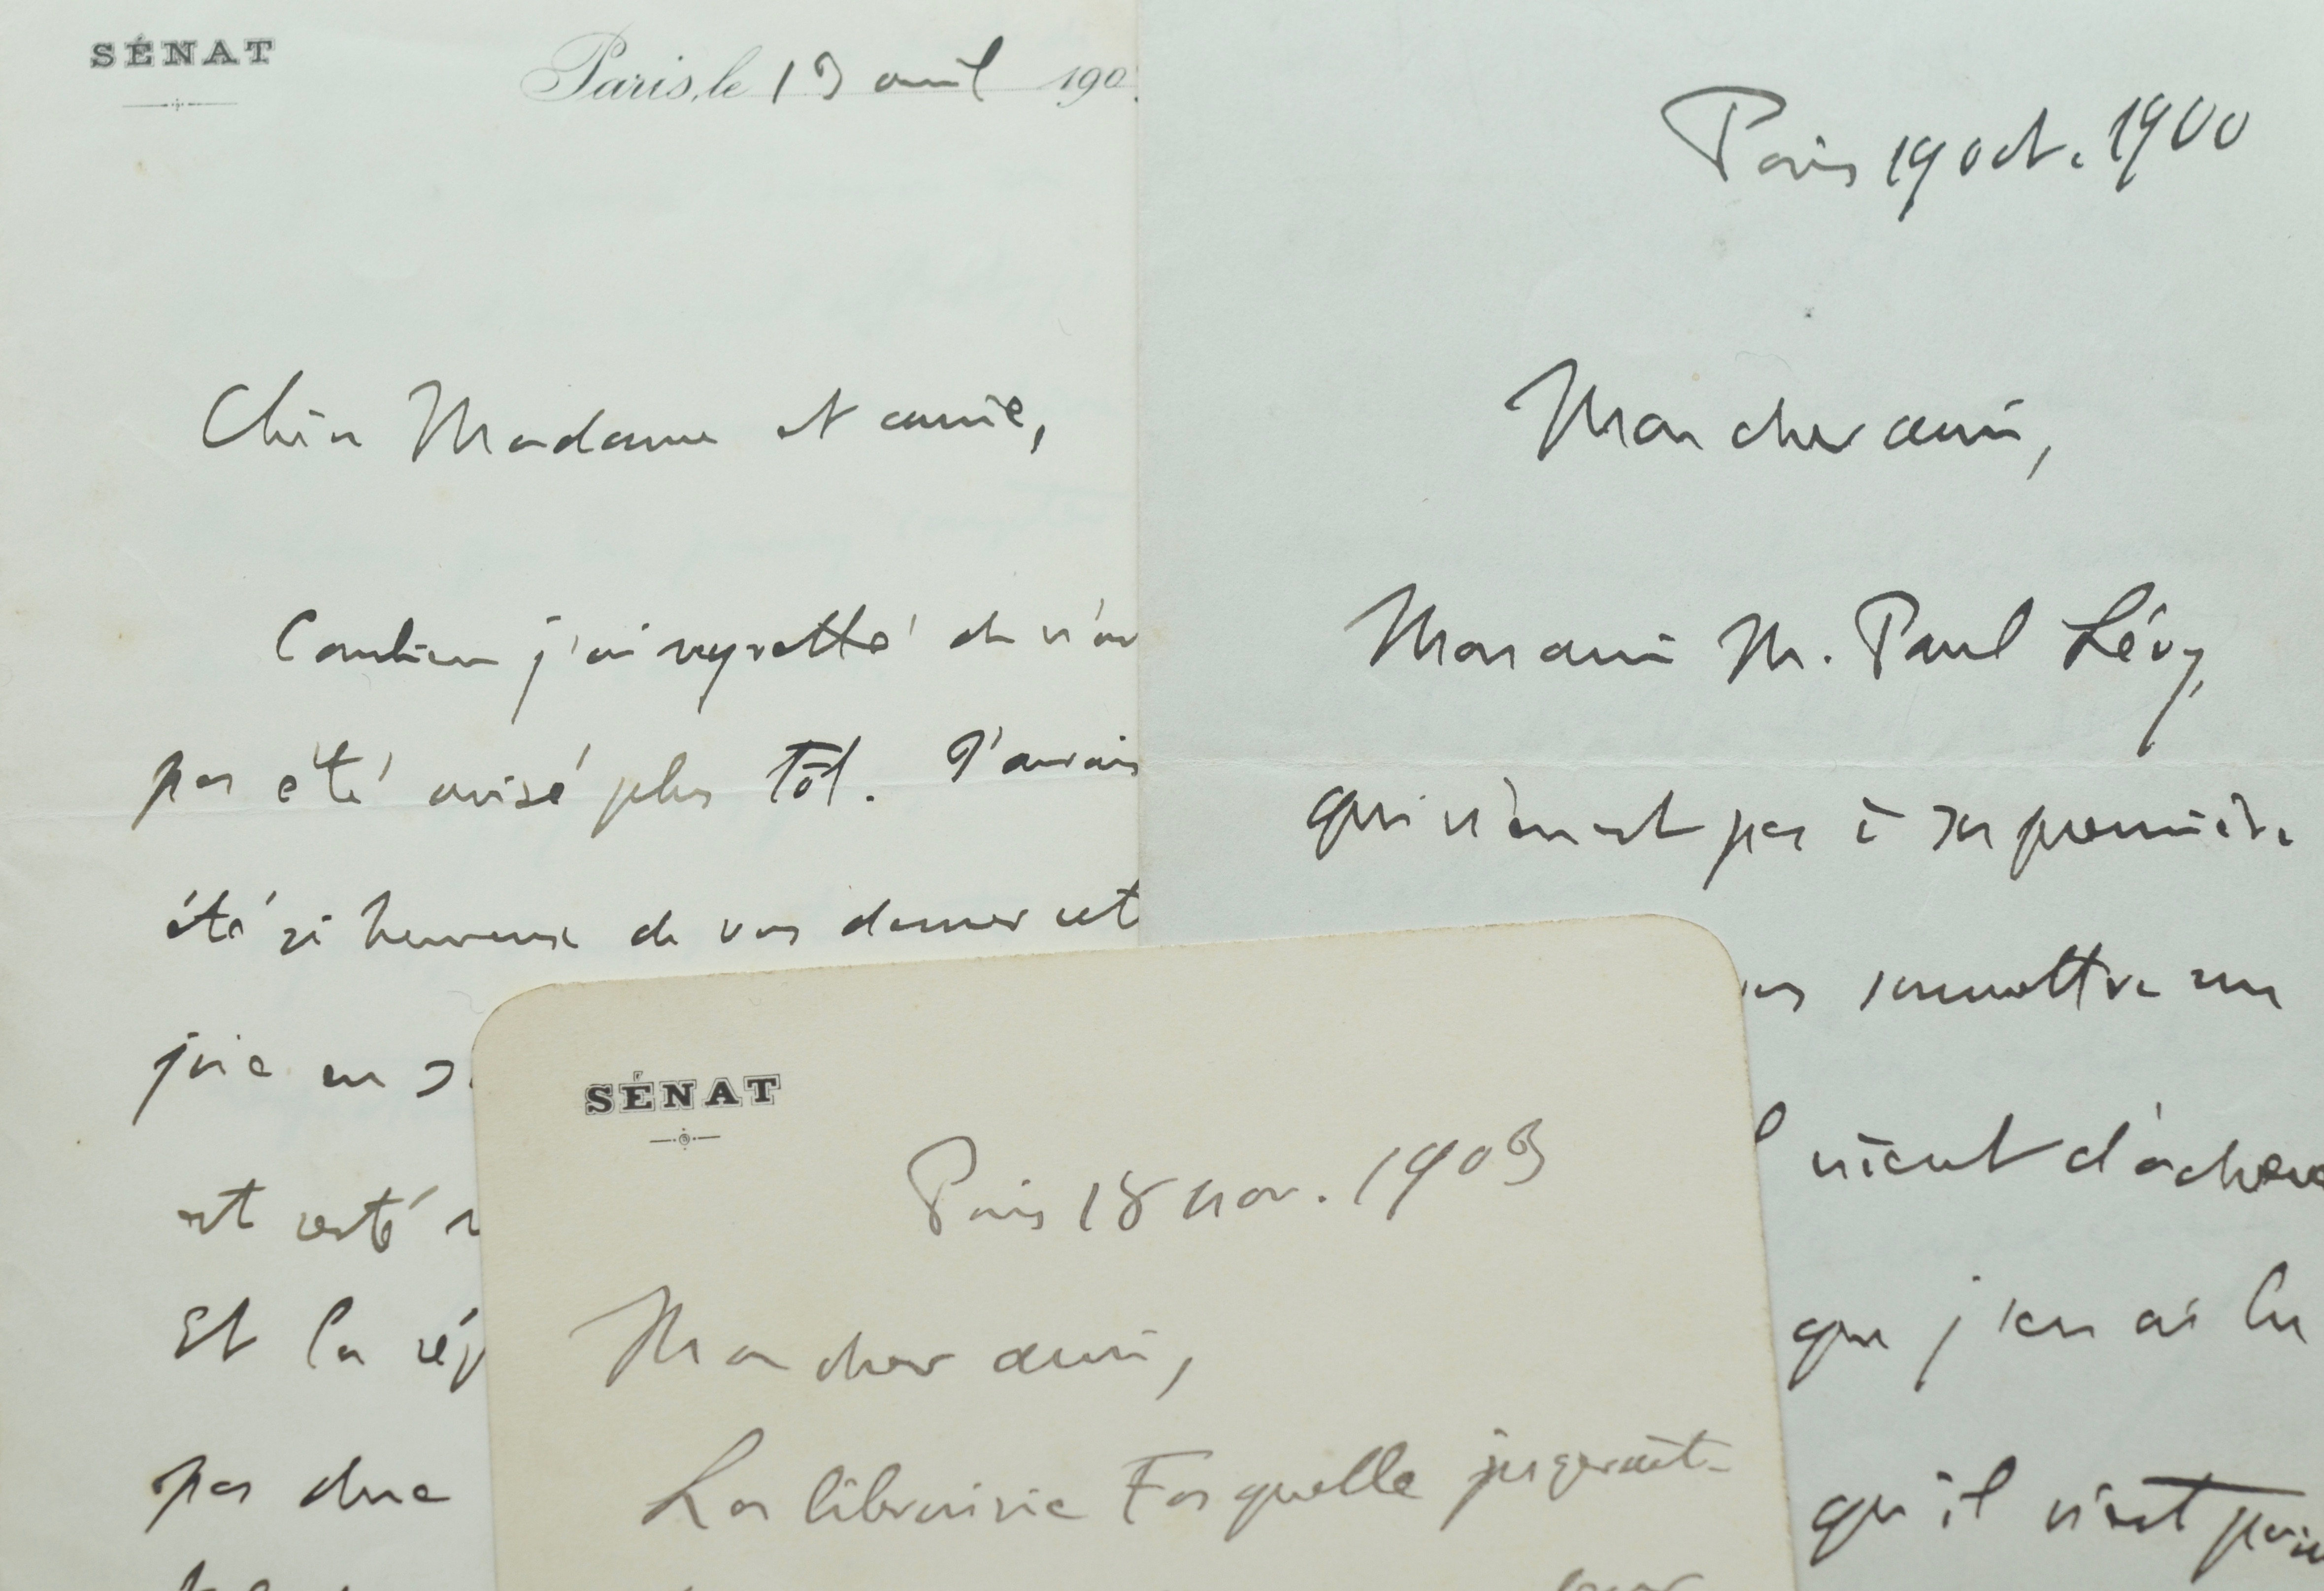 SÉNAT
Paris, le 13 avril 190
Chère Madame et amie,
Combien j'ai regretté de n'av
pas été avisé plus tôt. J'aurais
été si heureux de vous donner cet
joie en s
est resté
Et la rép
pas due
Paris 19 oct. 1900
Mon cher ami,
Mon ami M. Paul Lévy,
qui n'en est pas à sa première
soumettre un
vient d'achever
que j'en ai lu
qu'il n'est
SÉNAT
Paris 18 nov. 1903
Mon cher ami,
La librairie Fasquelle jugerait-